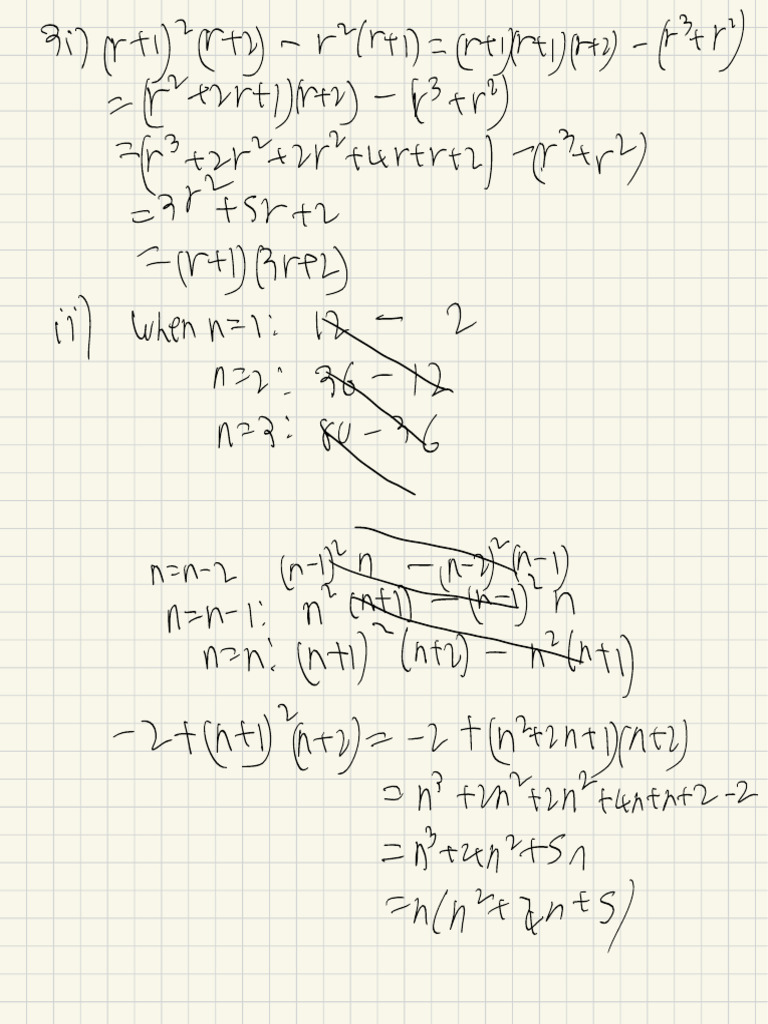 3i) (r+1)²(r+2) - r²(r+1) = (r+1)(r+1)(r+2) - (r³+r²)
= (r²+2r+1)(r+2) - (r³+r²)
= (r³+2r²+2r²+4r+r+2) - (r³+r²)
= 3r²+5r+2
= (r+1)(3r+2)
ii) When n=1: 12 - 2
n=2: 36 - 12
n=3: 80 - 36
n=n-2 (n-1)²n - (n-2)²(n-1)
n=n-1: n²(n+1) - (n-1)²n
n=n: (n+1)²(n+2) - n²(n+1)
-2+(n+1)²(n+2) = -2+(n²+2n+1)(n+2)
= n³+2n²+2n²+4n+n+2-2
= n³+4n²+5n
= n(n²+4n+5)